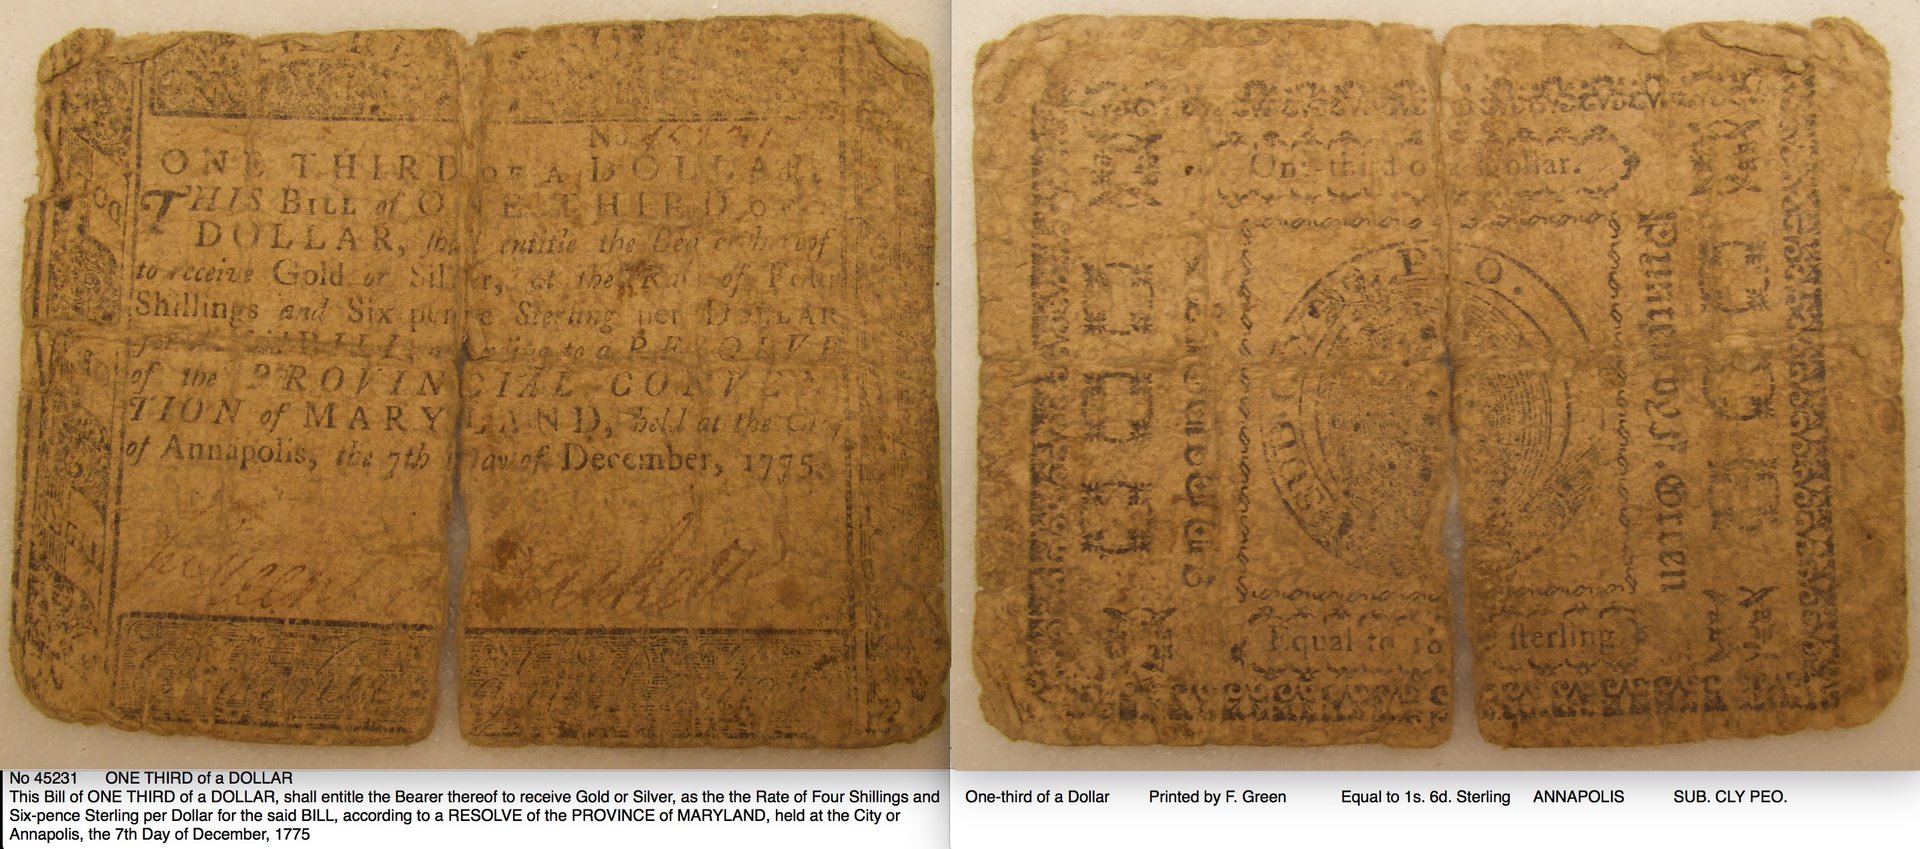 No
ONE THIRD OF A DOLLAR.
THIS BILL of ONE THIRD OF
DOLLAR, shall entitle the Bearer hereof
to receive Gold or Silver, at the Rate of Four
Shillings and Six pence Sterling per DOLLAR
BILL to a RESOLVE
of the PROVINCIAL CONVEN
TION of MARYLAND, held at the City
of Annapolis, the 7th Day of December, 1775.
One-third of a Dollar.
PEO.
Printed by F. Green
Equal to 1s sterling
No 45231 ONE THIRD of a DOLLAR
This Bill of ONE THIRD of a DOLLAR, shall entitle the Bearer thereof to receive Gold or Silver, as the the Rate of Four Shillings and
Six-pence Sterling per Dollar for the said BILL, according to a RESOLVE of the PROVINCE of MARYLAND, held at the City or
Annapolis, the 7th Day of December, 1775
One-third of a Dollar Printed by F. Green Equal to 1s. 6d. Sterling ANNAPOLIS SUB. CLY PEO.